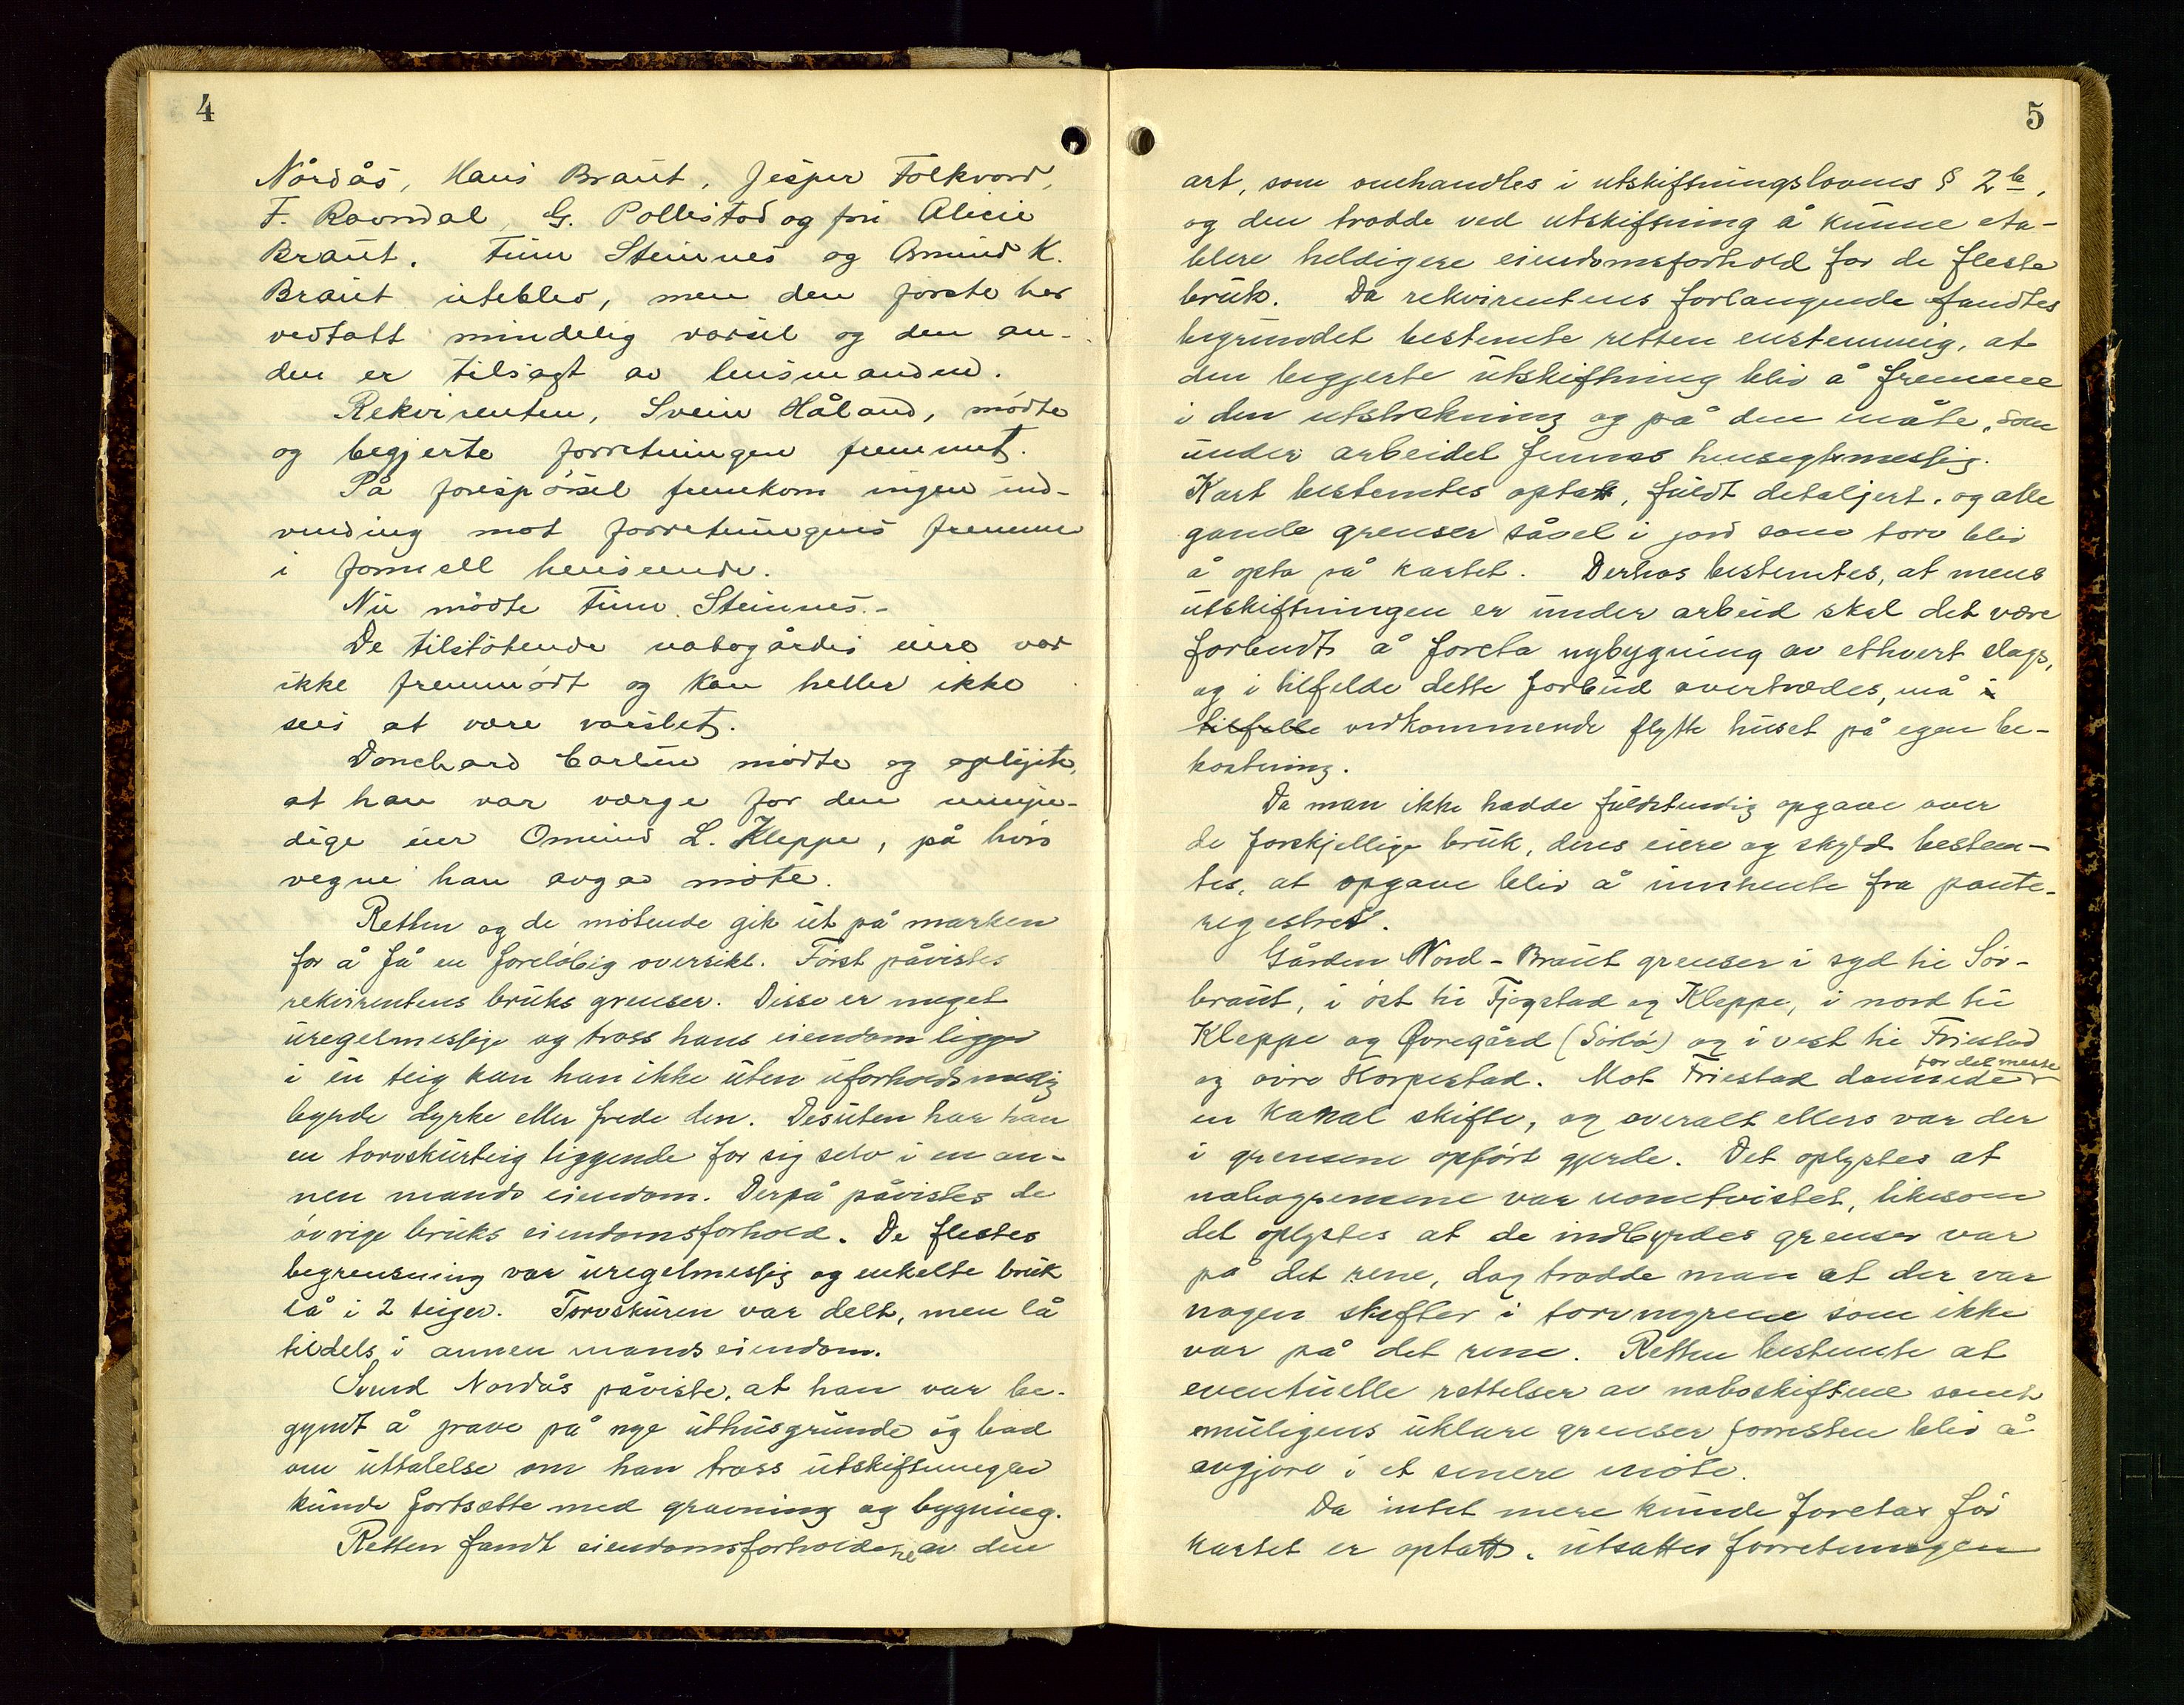 4
Nårdås, Hans Braut, Jesper Folkvord,
F. Ravndal, G. Pollestad og fru Alicie
Braut. Finn Steinnes og Osmund K.
Braut uteblev, men den første har
vedtatt mindelig varsel og den an-
den er tilsagt av lensmanden.
Rekvirenten, Svein Håland, møtte
og begjerte forretningen fremmet.
På forespørsel fremkom ingen ind-
vending mot forretningens fremme
i formell henseende.
Nu møtte Finn Steinnes.-
De tilstøtende nabogårdes eiere var
ikke fremmødt og kan heller ikke
sees at være varslet.
Carlsen møtte og oplyste,
at han var værge for den umyn-
dige eier Omund L. Kleppe, på hvis
vegne han avgav møte.
Retten og de møtende gik ut på marken
for å få en foreløbig oversikt. Først påvistes
rekvirentens bruks grenser. Disse er meget
uregelmessige og tross hans eiendom ligger
i én teig kan han ikke uten uforholdsmessig
byrde dyrke eller frede den. Desuten har han
en torvskurteig liggende for sig selv i en an-
nen mands eiendom. Derpå påvistes de
øvrige bruks eiendomsforhold. De flestes
begrensning var uregelmessig og enkelte bruk
lå i 2 teiger. Torvskuren var delt, men lå
tildels i annen mands eiendom.
Svend Nordås påviste, at han var be-
gyndt å grave på nye uthusgrunde og bad
om uttalelse om han tross utskiftningen
kunde fortsætte med gravning og bygning.
Retten fandt eiendomsforholdene av den
5
art, som omhandles i utskiftningslovens § 2 b,
og den trodde ved utskiftning å kunne eta-
blere heldigere eiendomsforhold for de fleste
bruk. Da rekvirentens forlangende fandtes
begrundet bestemte retten enstemmig, at
den begjerte utskiftning blir å fremme
i den utstrekning og på den måte, som
under arbeidet finnes hensigtsmessig.
Kart bestemtes optatt, fuldt detaljert, og alle
gamle grenser såvel i jord som torv blir
å opta på kartet. Derhos bestemtes, at mens
utskiftningen er under arbeid skal det være
forbudt å foreta nybygning av ethvert slags,
og i tilfelde dette forbud overtrædes, må i
tilfelle vedkommende flytte huset på egen be-
kostning.
Da man ikke hadde fuldstendig opgave over
de forskjellige bruk, deres eiere og skyld bestem-
tes, at opgave blir å innhente fra pante-
registret.
Gården Nord-Braut grenser i syd til Sør-
braut, i øst til Tjøgstad og Kleppe, i nord til
Kleppe og Øvregård (Sørbø) og i vest til Friestad
og øvre Horpestad. Mot Friestad dannede for det meste
en kanal skifte, og overalt ellers var der
i grensene opført gjerde. Det oplystes at
nabogrensene var uomtvistet, likesom
det oplystes at de indbyrdes grenser var
på det rene, dog trodde man at der var
nogen skifter i torvmyrene som ikke
var på det rene. Retten bestemte at
eventuelle rettelser av naboskiftene samt
muligens uklare grenser forresten blir å
avgjøre i et senere møte.
Da intet mere kunde foretas før
kartet er optatt, utsattes forretningen